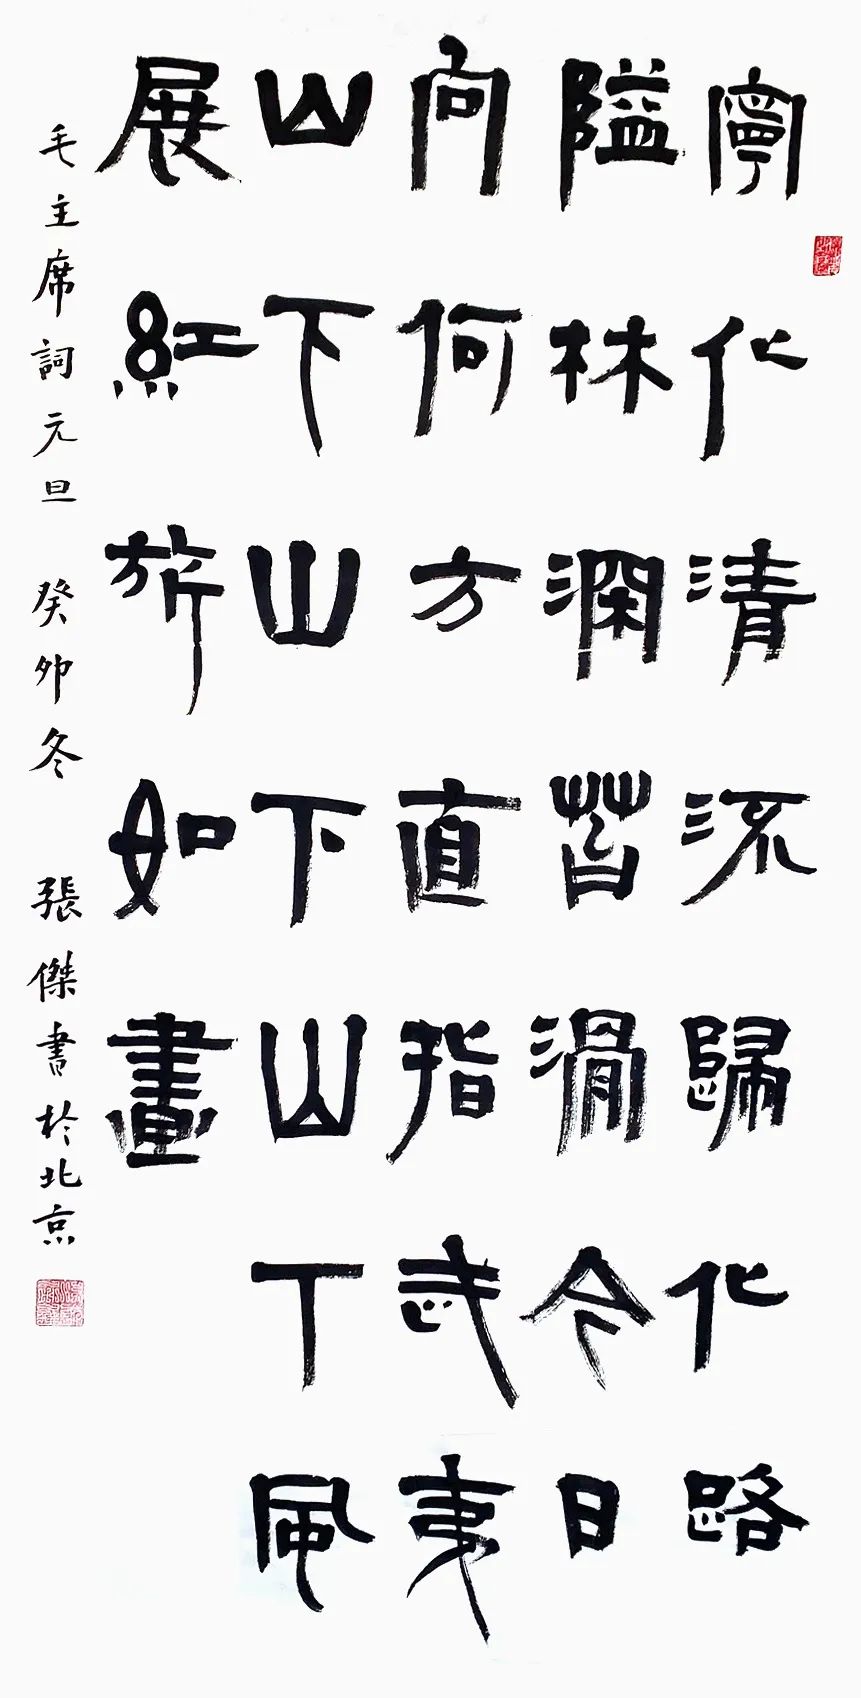 寧化清流歸化路
隘林深苔滑今日
向何方直指武夷
山下山下山下風
展紅旂如畫
毛主席詞元旦 癸卯冬 張傑書於北京